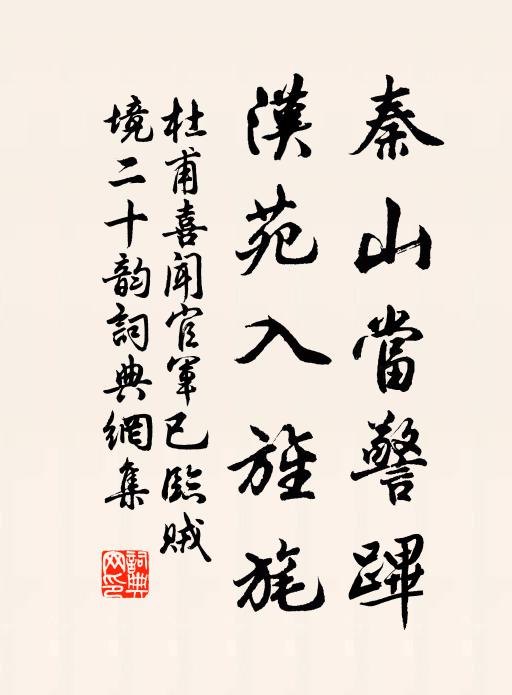 秦山當警蹕
漢苑入旌旄
杜甫喜聞官軍已臨賊
境二十韵詞典網集
詞典网印